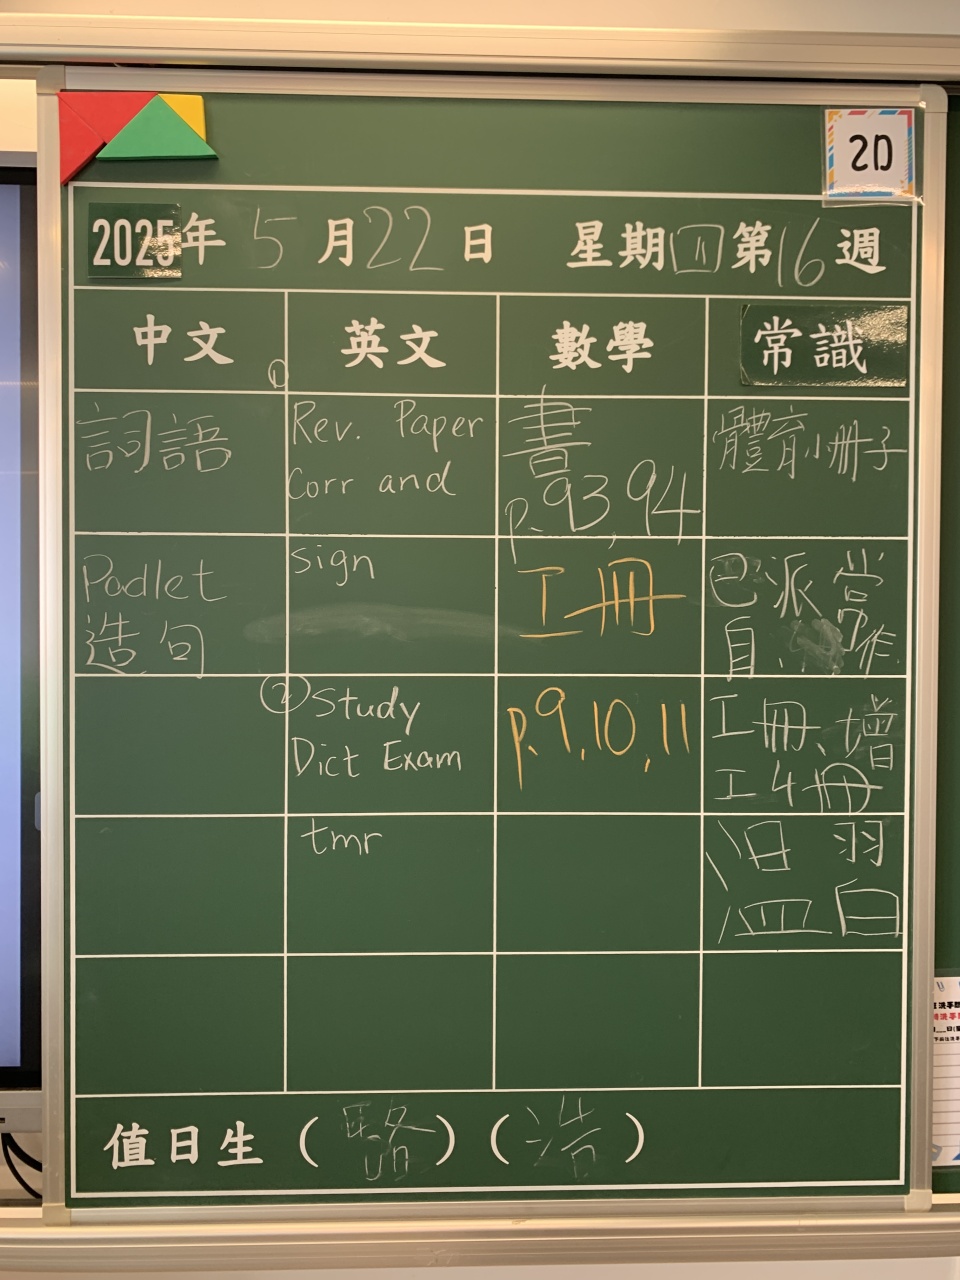 2D
2025年 5 月 22 日 星期四 第 16 週
中文 英文 數學 常識
詞語
Padlet
造句
① Rev. Paper
Corr and
sign
② Study
Dict Exam
tmr
書
p.93, 94
工冊
p.9, 10, 11
體育小冊子
已派常
自、作
工冊、增
工4冊
溫習
值日生 ( 略 ) ( 浩 )